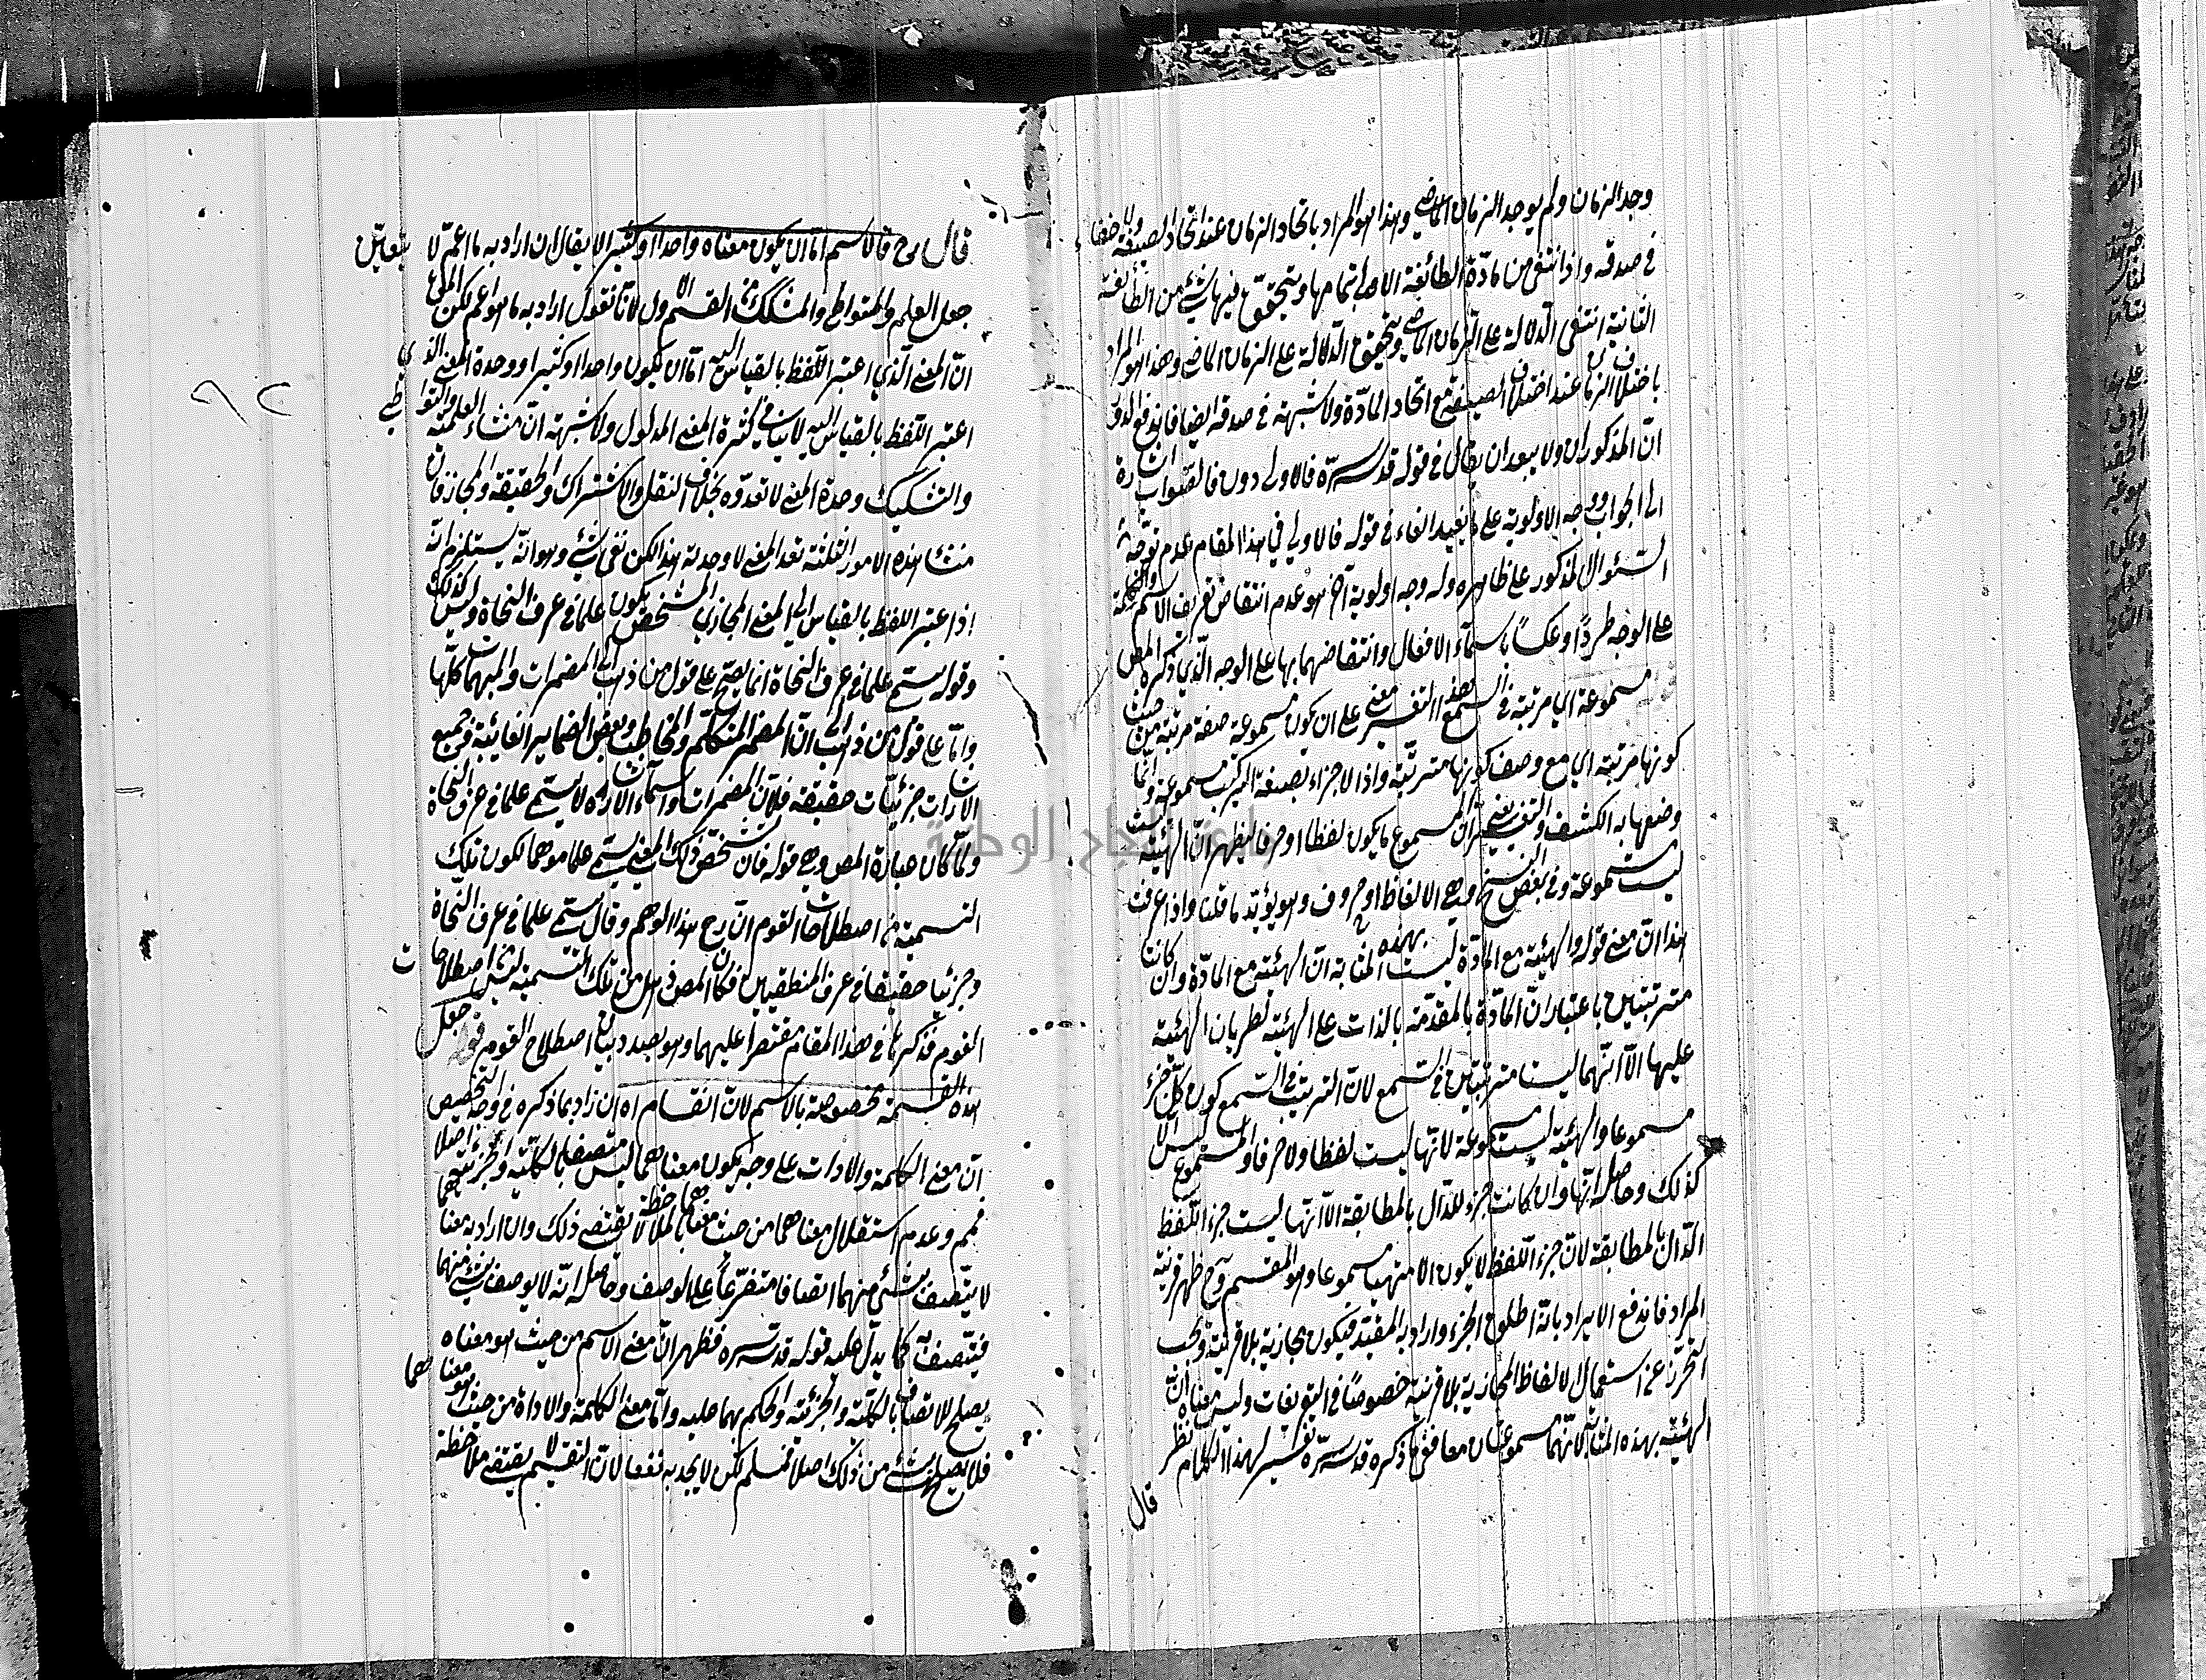 وجد الزمان ولم يوجد الزمان الماضي وهذا هو المراد باتحاد الزمان عند اتحاد الصيغة ولا خفاء
في صدقه واذا انتفى من مادة الطائفة الاولى بتمامها ويتحقق فيها شيء من الطائفة
الثانية انتفى الدلالة على الزمان الماضي ويتحقق الدلالة على الزمان الماضي وهذا هو المراد
باختلاف الزمان عند اختلاف الصيغة مع اتحاد المادة ولا شبهة في صدقه ايضا فاندفع
ان المذكوران ولا يبعد ان يقال في قوله قدس سره فالاولى دون فالصواب اشارة
الى الجواب ووجه الاولوية على ما يفيد الفاء في قوله فالاولى في هذا المقام عدم توجه
السئوال المذكور على ظاهره وله وجه اولوية آخر هو عدم انتقاض تعريف الاسم والكلمة
على الوجه طردًا وعكسًا باسماء الافعال وانتقاضهما بها على الوجه الذي ذكره المص
مسموعة اي مرتبة في السمع التفسير على ان يكون مسموعة صفة مرتبة من حيث
كونها مرتبة اي مع وصف كونها مترتبة واذا الاجزاء بصيغة المركب مسموعة وانما
وضعها به الكشف والتفسير ان المسموع ما يكون لفظا او حرفا ليظهر ان الهيئة ليست
ليست مسموعة وفي بعض النسخ وهي الالفاظ او حروف وهو يؤيد ما قلنا واذا عرفت
هذا ان معنى قوله والهيئة مع المادة ليست بهذه المثابة ان الهيئة مع المادة وان كانتا
مترتبتين باعتبار ان المادة بالمقدمة بالذات على الهيئة لطريان الهيئة
عليها الا انهما ليستا مترتبتين في السمع لان الترتيب في السمع كون كل جزء
مسموعا والهيئة ليست مسموعة لانها ليست لفظا ولا حرفا والمسموع ليس الا
كذلك وحاصله انها وان كانت جزء للدال بالمطابقة الا انها ليست جزء اللفظ
الدال بالمطابقة لان جزء اللفظ لا يكون الا مسموعا وهو المقسم وح ظهر قرينة
المراد فاندفع الايراد بانه اطلق الجزء واراد به المقيد فيكون مجازية بلا قرينة ويجب
التحرز عن استعمال الالفاظ المجازية بلا قرينة خصوصًا في التعريفات وليس معناه ان
الهيئة بهذه المثابة لانهما مسموعتان معا ففي ما ذكره قدس سره تفسير لهذا الكلام نظر
قال
قال رح فالاسم اما ان يكون معناه واحدا او كثيرا لا يقال ان اراد به ما اعم لا يتعين
جعل العلم والمتواطي والمشكك من القسم الاول لانا نقول اراد به ما هو اعم لكن المراد
ان المعنى الذي اعتبر اللفظ بالقياس اليه اما ان يكون واحدا او كثيرا ووحدة المعنى الذي
اعتبر اللفظ بالقياس اليه لا ينافي كثرة المعنى المدلول ولا شبهة ان منشاء العلمية والتواطي
والتشكيك وحدة المعنى لا تعدده بخلاف النقل والاشتراك والحقيقة والمجاز فان
منشا هذه الامور الثلثة تعدد المعنى لا وحدته هذا لكن بقى شيء وهو انه يستلزم انه
اذا اعتبر اللفظ بالقياس الى المعنى المجازي المشخص يكون علما في عرف النحاة وليس كذلك
وقوله يسمى علما في عرف النحاة انما يصح على قول من ذهب الى المضمرات والمبهمات كلها
واما على قول من ذهب الى ان المضمر المتكلم والمخاطب وبعض الضماير الغائبة وجميع
الاشارات جزئيات حقيقة فلان المضمرات واسماء الاشارة لا يسمى علما في عرف النحاة
ولما كان عبارة المص وهي قوله فان تشخص ذلك المعنى يسمى علما موهما لكون تلك
التسمية من اصطلاحات القوم ان رح هذا الوهم وقال يسمى علما في عرف النحاة
وجزئيا حقيقيا في عرف المنطقيين فكان المص ذهل من تلك التسمية اصطلاحات
القوم فذكرها في هذا المقام مقتصرا عليهما وهو بصدد بيان اصطلاح القوم قوله جعل
هذه القسمة مخصوصة بالاسم لان انقسام اه ان زاد بما ذكره في وجه التخصيص
ان معنى الكلمة والادات على وجه يكون معناهما ليس متصفا بالكلية والجزئية اصلا
فمم وعدم استقلال معناهما من حيث معناهما لا يقتضي ذلك وان اراد به معناهما
لا يتصف بشئ منهما اتصافا متفرعا على الوصف وحاصله انه لا يوصف بشئ منهما
فيتصف به كما يدل عليه قوله قدس سره فظهر ان معنى الاسم من حيث هو معناه
يصلح للاتصاف بالكلية والجزئية والحكم بهما عليه واما معنى الكلمة والاداة من حيث هو معناهما
فلا يصلح بشئ من ذلك اصلا فمسلم لكن لا يجد به نفعا لان التقسيم لا يقتضي ملاحظة